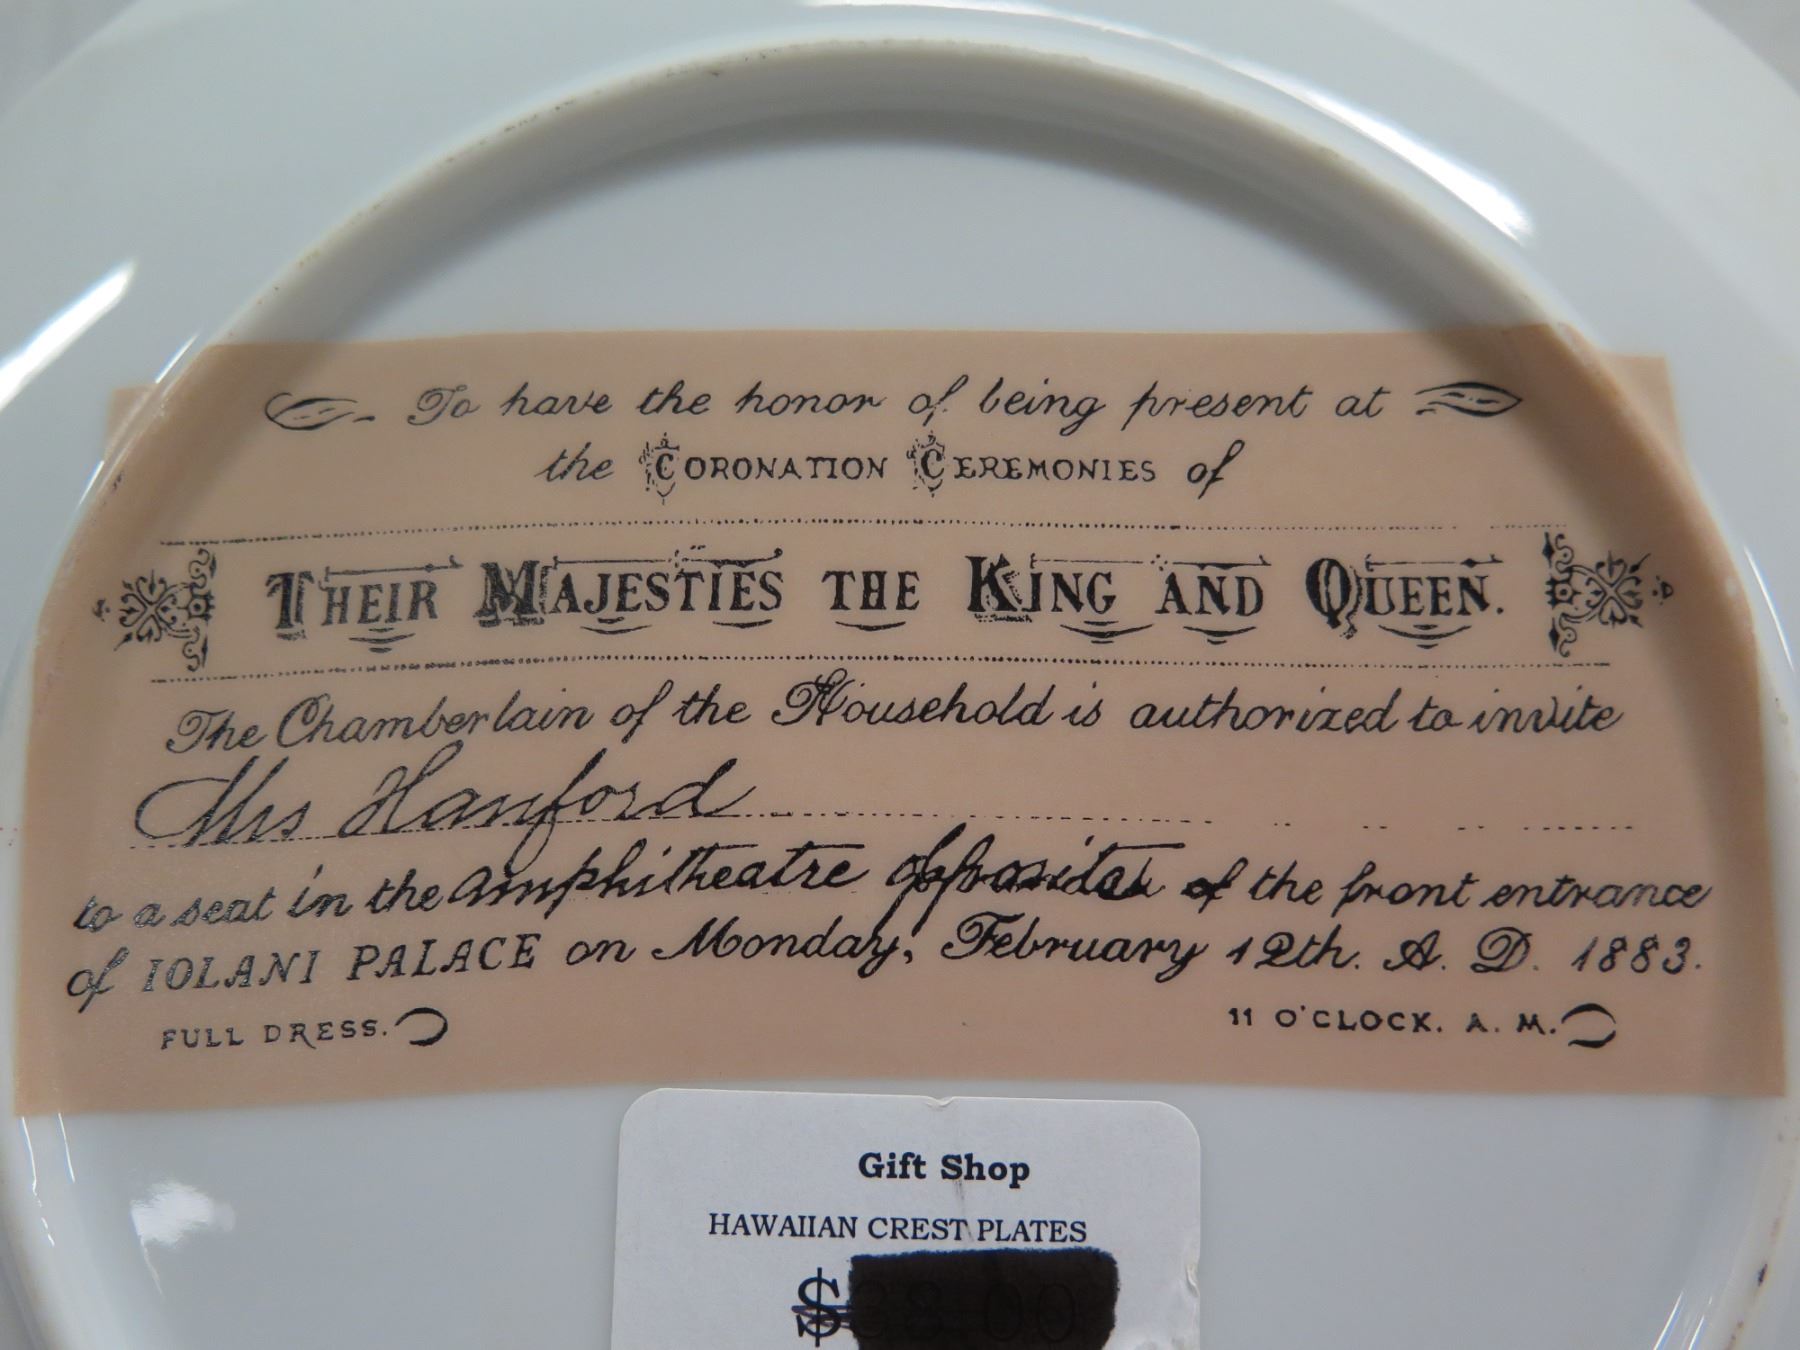 To have the honor of being present at
the CORONATION CEREMONIES of
THEIR MAJESTIES THE KING AND QUEEN.
The Chamberlain of the Household is authorized to invite
Mrs Hanford
to a seat in the amphitheatre opposite of the front entrance
of IOLANI PALACE on Monday, February 12th. A. D. 1883.
FULL DRESS.
11 O'CLOCK. A. M.
Gift Shop
HAWAIIAN CREST PLATES
$